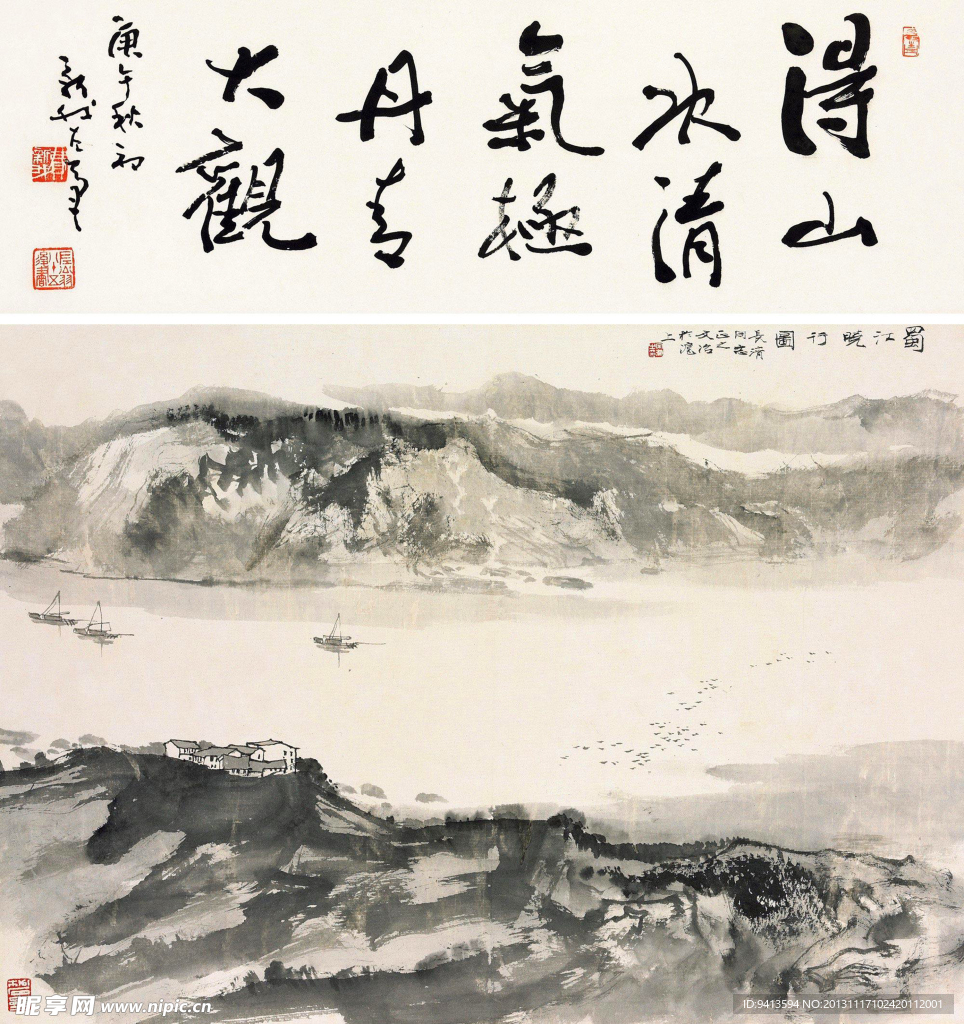 得山
水清
氣極
丹青
大觀
庚午秋初
新我左筆
蜀江曉行圖
同志
正之
文治
於滬
上
昵享网 www.nipic.cn
ID:9413594 NO:20131117102420112001